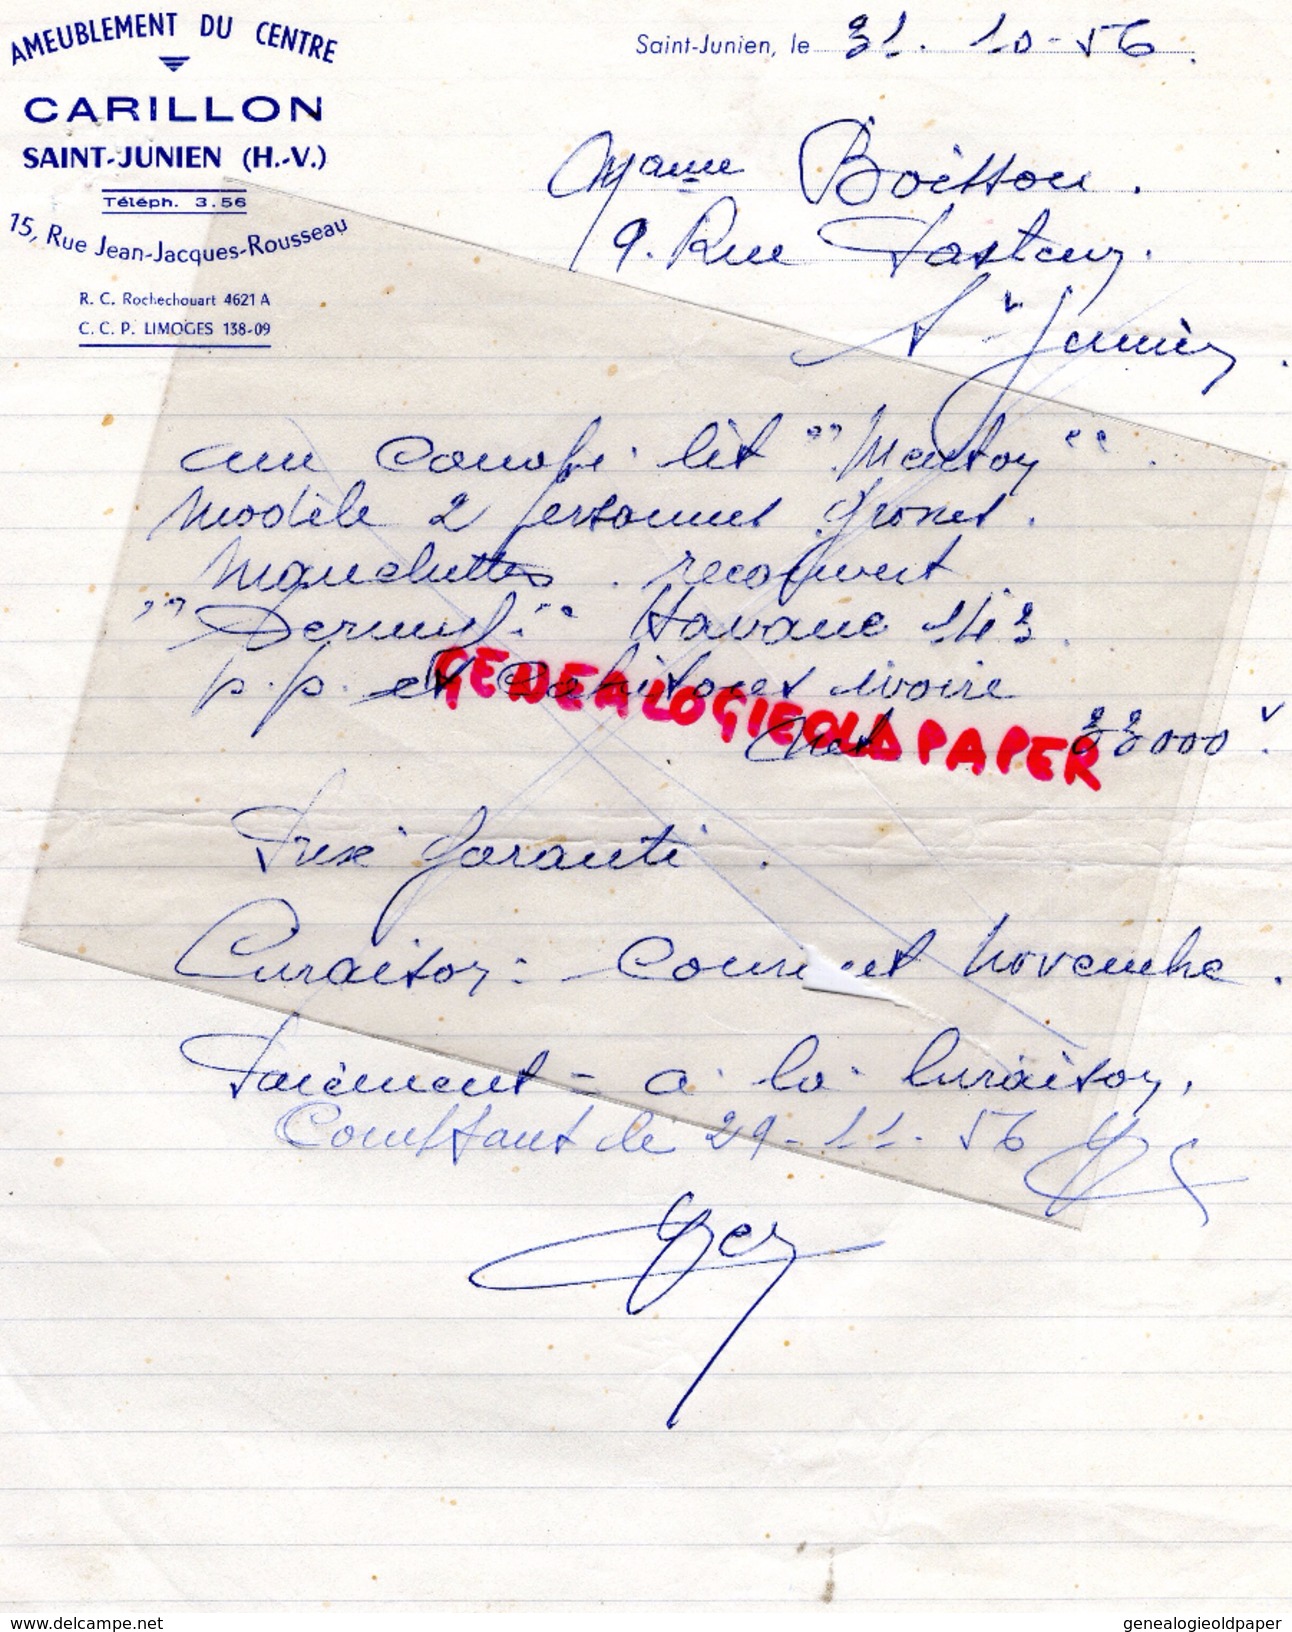 AMEUBLEMENT DU CENTRE
CARILLON
SAINT-JUNIEN (H.-V.)
Téléph. 3.56
15, Rue Jean-Jacques-Rousseau
R. C. Rochechouart 4621 A
C. C. P. LIMOGES 138-09
Saint-Junien, le 31. 10-56.
Mame Boisson.
9. Rue Pasteur.
St Junien.
un canapé lit "Menton".
modèle 2 personnes
Manchettes. recouvert
" " Havane 143.
p.p. et ivoire
GENEALOGIEOLDPAPER
Net 33000
Prix garanti.
Livraison: Courant Novembre.
Paiement - à la livraison,
Comptant le 29-11-56
www.delcampe.net
genealogieoldpaper